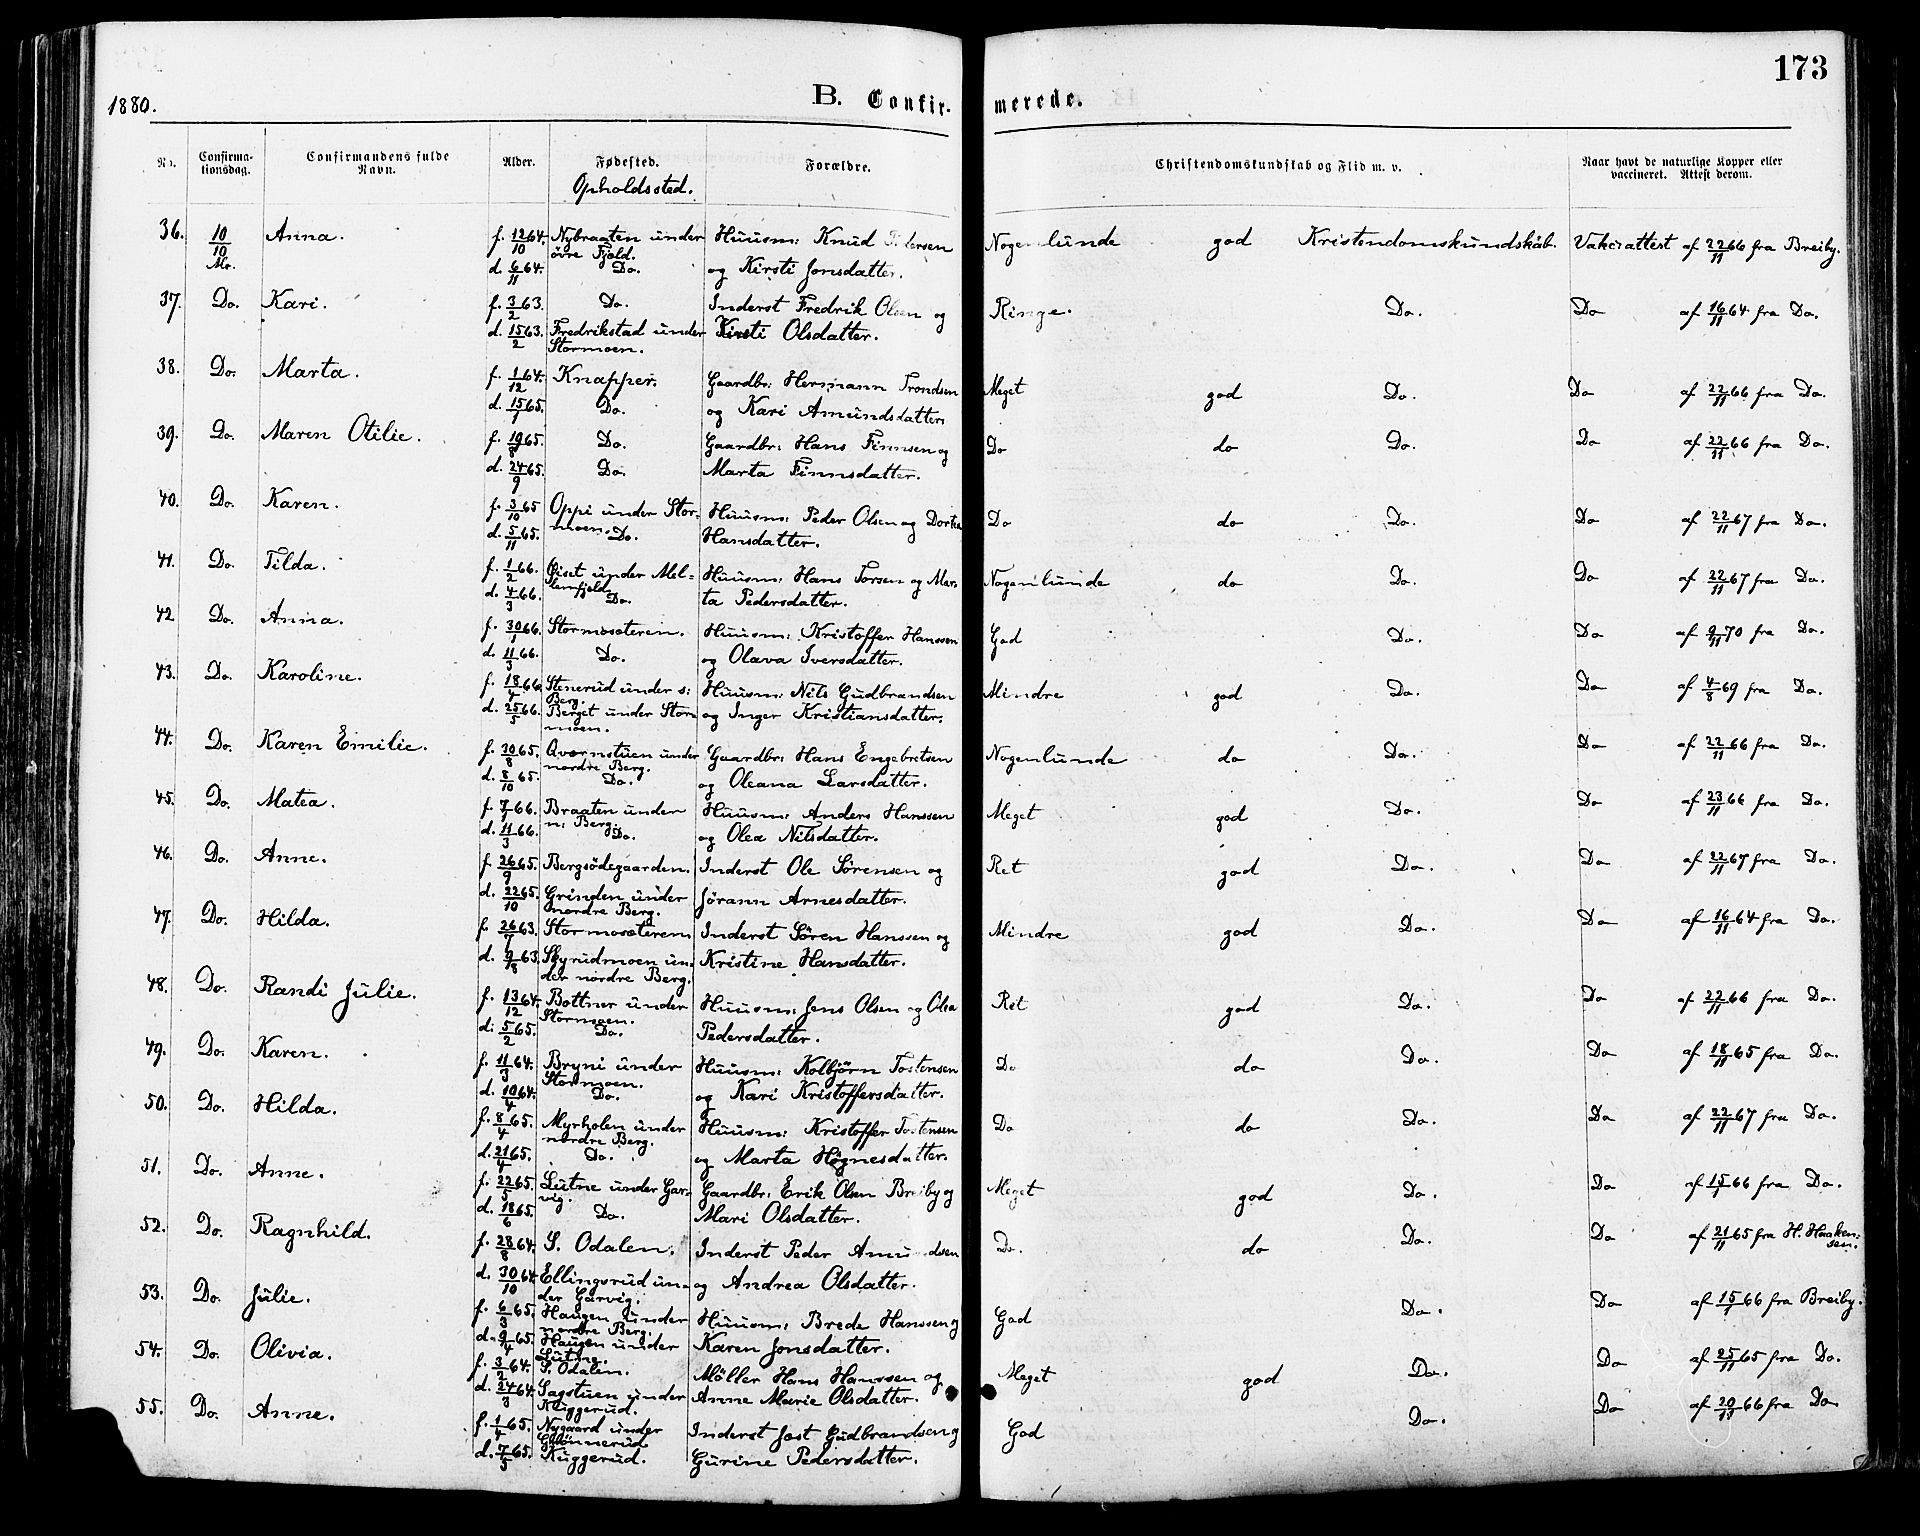 173
1880.
B. Confir- merede.
Nr.
Confirma-tionsdag.
Confirmandens fulde Navn.
Alder.
Fødested.
Opholdssted.
Forældre.
Christendomskundskab og Flid m. v.
Naar havt de naturlige Kopper eller vaccineret. Attest derom.
36. 10/10 Anna. f. 12/10 64. Nybraaten under Huusm: Knud Pedersen Nogenlunde god Kristendomskundskab. Vakc:attest af 22/11 66 fra Breiby.
øvre Fjeld.
Mr. d. 6/11 64. Do. og Kirsti Jonsdatter.
37. Do. Kari. f. 3/2 63. Do. Inderst Fredrik Olsen og Ringe. Do. Do af 16/11 64 fra Do.
d. 15/2 63. Fredrikstad under Kirsti Olsdatter.
Stormoen.
38. Do. Marta. f. 1/12 64. Knapper. Gaardbr: Hermann Trondsen Meget god Do. Do af 22/11 66 fra Do.
d. 15/1 65. Do. og Kari Amundsdatter.
39. Do. Maren Otilie. f. 19/8 65. Do. Gaardbr: Hans Finnsen og Do do Do. Do af 22/11 66 fra Do.
d. 24/9 65. Do. Marta Finnsdatter.
40. Do. Karen. f. 3/10 65 Oppi under Stor- Huusm: Peder Olsen og Dortea Do do Do. Do af 22/11 67 fra Do.
moen.
d. 5/11 65. Do. Hansdatter.
41. Do. Tilda. f. 1/2 66. Øiset under Mel- Huusm: Hans Torsen og Mar- Nogenlunde do Do. Do af 22/11 67 fra Do.
lemfjeld.
d. 4/3 66. Do. ta Pedersdatter.
42 Do. Anna. f. 30/1 66. Stormosæteren. Huusm: Kristoffer Hanssen God Do. Do af 9/11 70 fra Do.
d. 11/3 66. Do. og Olava Iversdatter.
43. Do. Karoline. f. 18/4 66. Stenerud under s: Huusm: Nils Gudbrandsen Mindre god Do. Do af 4/8 69 fra Do.
Berg.
d. 25/5 66. Berget under Stor- og Inger Kristiansdatter.
moen.
44. Do. Karen Emilie. f. 30/8 65. Qværnstuen under Gaardbr: Hans Engebretsen Nogenlunde do Do. Do af 22/11 66 fra Do.
nordre Berg.
d. 8/10 65. Do. og Oleana Larsdatter.
45. Do. Matea. f. 7/1 66. Braaten under Huusm: Anders Hanssen Meget god Do. Do af 23/11 66 fra Do.
n: Berg.
d. 11/3 66. Do. og Olea Nilsdatter.
46. Do. Anne. f. 26/9 65. Bergsødegaarden. Inderst Ole Sørensen og Ret god Do. Do af 22/11 67 fra Do.
d. 22/10 65. Grinden under Jörann Arnesdatter.
nordre Berg.
47. Do. Hilda. f. 26/7 63. Stormosæteren Inderst Sören Hanssen og Mindre god Do. Do af 16/11 64 fra Do.
d. 9/8 63. Skyrudmoen un- Kristine Hansdatter.
der nordre Berg.
48. Do. Randi Julie. f. 13/12 64. Bottner under Huusm: Jens Olsen og Olea Ret god Do. Do af 22/11 66 fra Do.
Stormoen.
d: 5/2 65. Do. Pedersdatter.
49. Do. Karen. f. 11/3 64. Bryni under Huusm: Kolbjörn Tostensen Do do Do. Do af 18/11 65 fra Do.
Stormoen.
d. 10/4 64. Do. og Kari Kristoffersdatter.
50. Do. Hilda. f. 8/4 65. Myrholen under Huusm: Kristoffer Tostensen Do do Do. Do af 22/11 67 fra Do.
nordre Berg.
d. 21/4 65. Do. og Marta Høgnesdatter.
51. Do. Anne. f. 22/5 65. Lutne under Gar- Gaardbr: Erik Olsen Breiby og Meget god Do. Do af 15/1 66 fra Do.
vig.
d. 18/6 65. Do. Mari Olsdatter.
52. Do. Ragnhild. f. 28/8 64. S. Odalen. Inderst Peder Amundsen Do. do Do. Do af 21/11 65 fra H. Haaken-
sen.
d. 30/10 64. Ellingsrud un- og Andrea Olsdatter.
der Garvig.
53. Do. Julie. f. 6/3 65. Haugen under Huusm: Brede Hanssen og God Do. Do af 15/1 66 fra Breiby.
nordre Berg.
d. 9/4 65. Haugen under Karen Jonsdatter.
Lutne.
54. Do. Olivia. f. 3/2 64. S. Odalen. Möller Hans Hanssen og Meget god Do. Do af 25/11 65 fra Do.
d. 24/3 64. Sagstuen under Anne Marie Olsdatter.
Kuggerud.
55. Do. Anne. f. 1/4 65. Nygaard under Inderst Jost Gudbrandsen og God Do. Do af 20/11 66 fra Do
Grönnerud.
d. 7/5 65. Kuggerud. Gurine Pedersdatter.